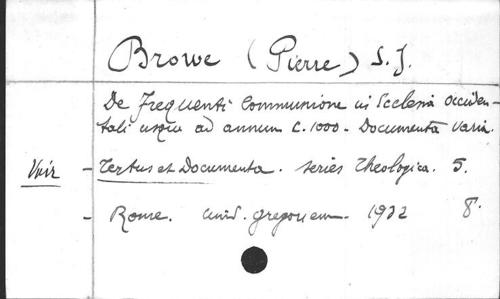 Browe (Pierre) S.J.
De Frequenti Communione in Ecclesia occiden-
tali usque ad annum c. 1000 - Documenta varia.
Voir - Textus et Documenta. series theologica. 5.
- Rome. univ. gregorienn. 1932 8°